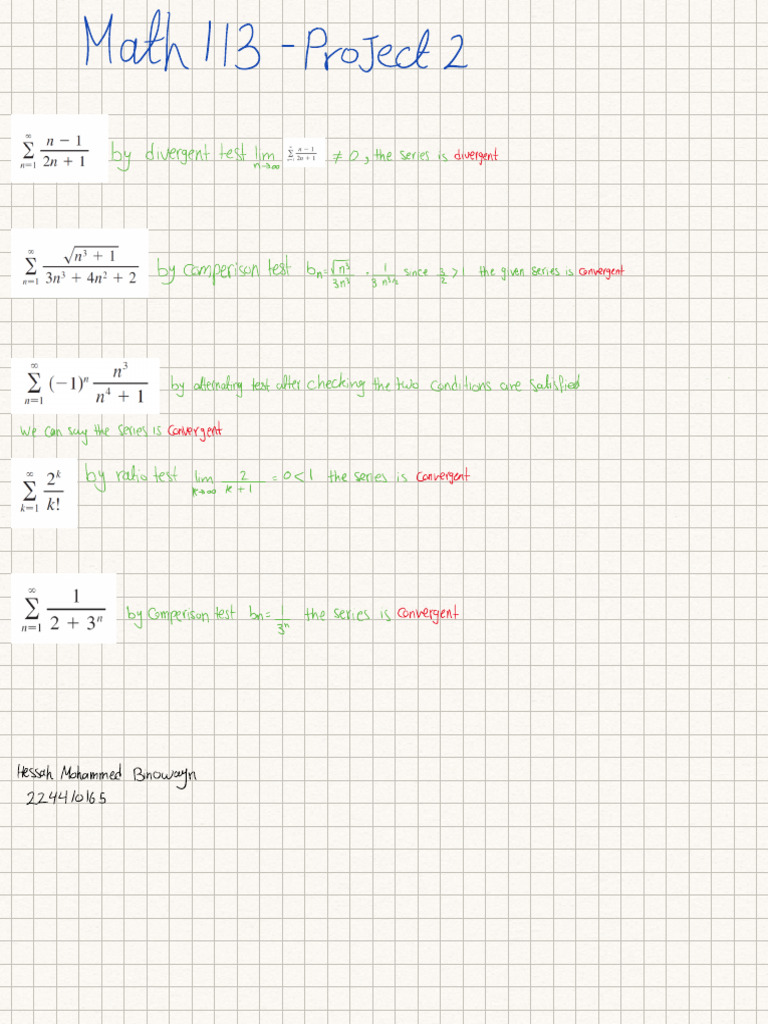 Math 113 - Project 2
∞ Σ n=1 n − 1 / 2n + 1 by divergent test lim n→∞ ∞ Σ n=1 n − 1 / 2n + 1 ≠ 0, the series is divergent
∞ Σ n=1 √(n³ + 1) / 3n³ + 4n² + 2 by comperison test bn = √n³ / 3n³ = 1 / 3 n^3/2 since 3/2 > 1 the given series is convergent
∞ Σ n=1 (−1)ⁿ n³ / n⁴ + 1 by alternating test after checking the two conditions are satisfied
we can say the series is convergent
∞ Σ k=1 2ᵏ / k! by ratio test lim k→∞ 2 / k + 1 = 0 < 1 the series is convergent
∞ Σ n=1 1 / 2 + 3ⁿ by comperison test bn = 1 / 3ⁿ the series is convergent
Hessah Mohammed Binowayn
224410165